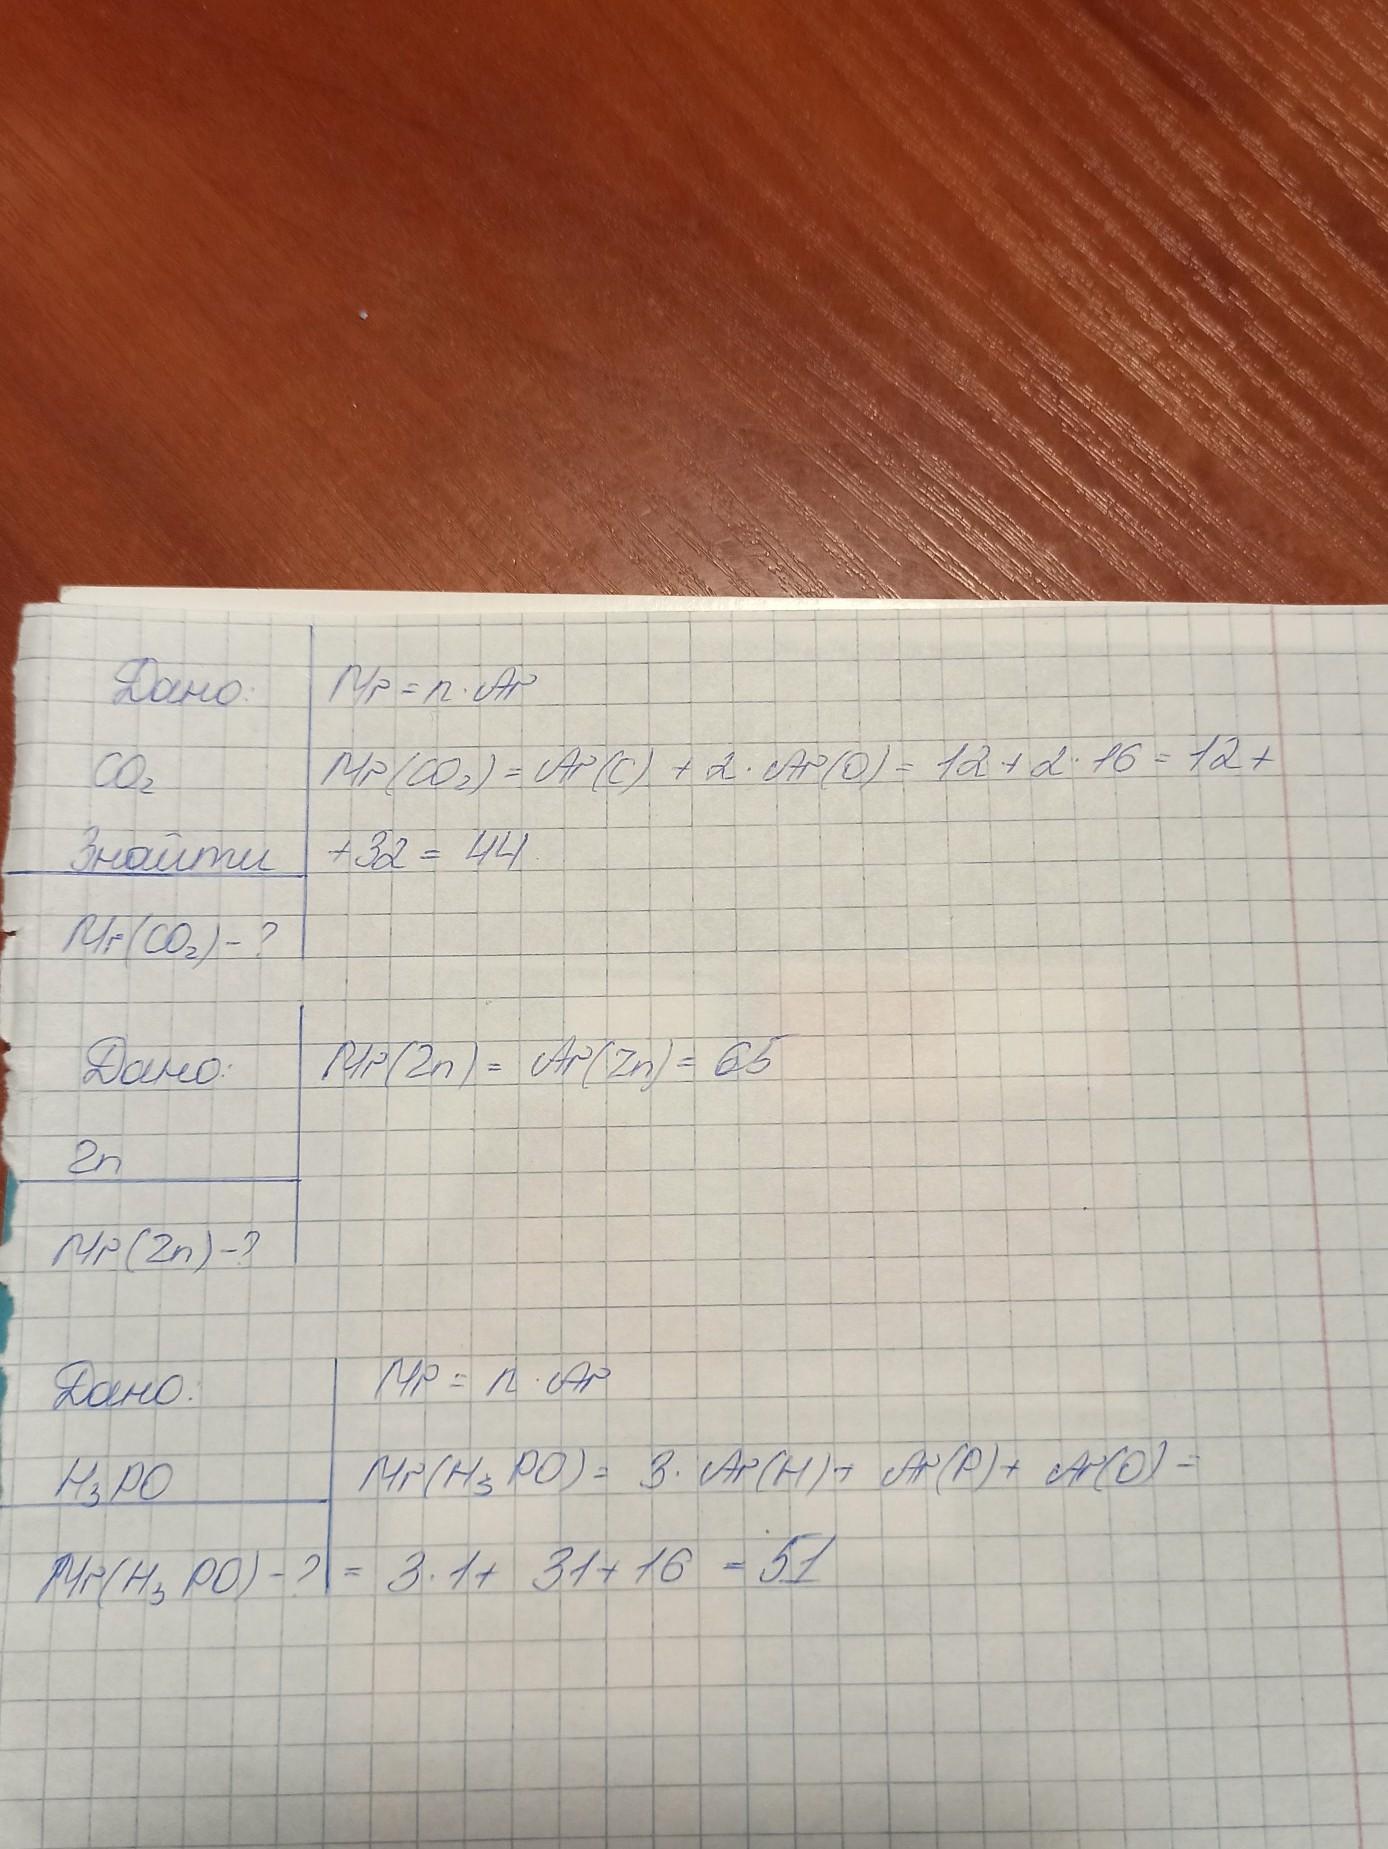 Дано:
Mr = n · Ar
CO₂
Mr(CO₂) = Ar(C) + 2 · Ar(O) = 12 + 2 · 16 = 12 +
Знайти
+ 32 = 44
Mr(CO₂) - ?
Дано:
Mr(Zn) = Ar(Zn) = 65
Zn
Mr(Zn) - ?
Дано:
Mr = n · Ar
H₃PO
Mr(H₃PO) = 3 · Ar(H) + Ar(P) + Ar(O) =
Mr(H₃PO) - ?
= 3 · 1 + 31 + 16 = 51